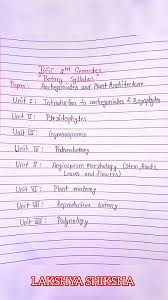 BSC 2nd Semester
"Botany Syllabus"
Paper: Archegoniates and Plant Architecture
Unit I: Introduction to archegoniates & Bryophytes
Unit II: Pteridophytes
Unit III: Gymnosperms
Unit IV: Paleobotany
Unit V: Angiosperm Morphology (Stem, Roots,
Leaves and Flowers)
Unit VI: Plant anatomy
Unit VII: Reproductive botany
Unit VIII: Palynology
LAKSHYA SHIKSHA